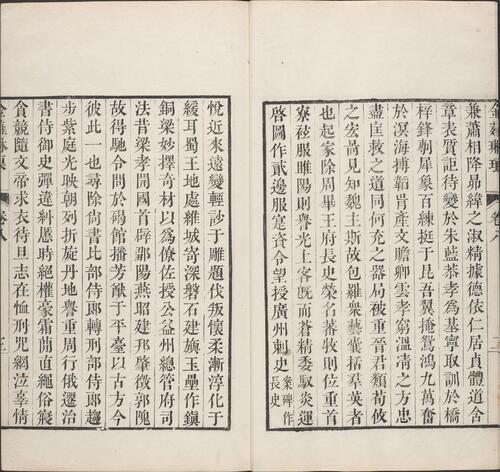 兼蕭相降昴緯之淑精據德依仁居貞體道含
章表質詎待變於朱藍恭孝為基寧取訓於橋
梓鋒剸犀象百練挺于昆吾翼掩鴛鴻九萬奮
於溟海搏韜胄產文贍卿雲孝窮溫凊方忠
盡匡救之道同何充之器局被重晉君類荀攸
之宏啚見知魏主斯故包羅衆藝囊括羣英者
也起家除周畢王府長史榮名蕃牧則位重首
寮袨服睢陽則譽光上客既而蒼精委馭炎運
啓圖作貳邊服寔資令望授廣州刺史案碑作長史
悅近來遠變輕訬于雕題伐叛懷柔漸淳化于
緩耳蜀王地處維城寄深磐石建旟玉壘作鎭
銅梁妙擇奇材以為僚佐授公益州總管府司
法昔梁孝開國首辟鄒陽燕昭建邦肇徵郭隗
故得馳令問於碣館播芳猷于平臺以古方今
彼此一也尋除尙書比部侍郎轉刑部侍郎趨
步紫庭光映朝列折旋丹地譽重周行俄遷治
書侍御史彈違糾慝時絕權豪霜簡直繩俗寢
貪競隨文帝求衣待旦志在恤刑咒網泣辜情